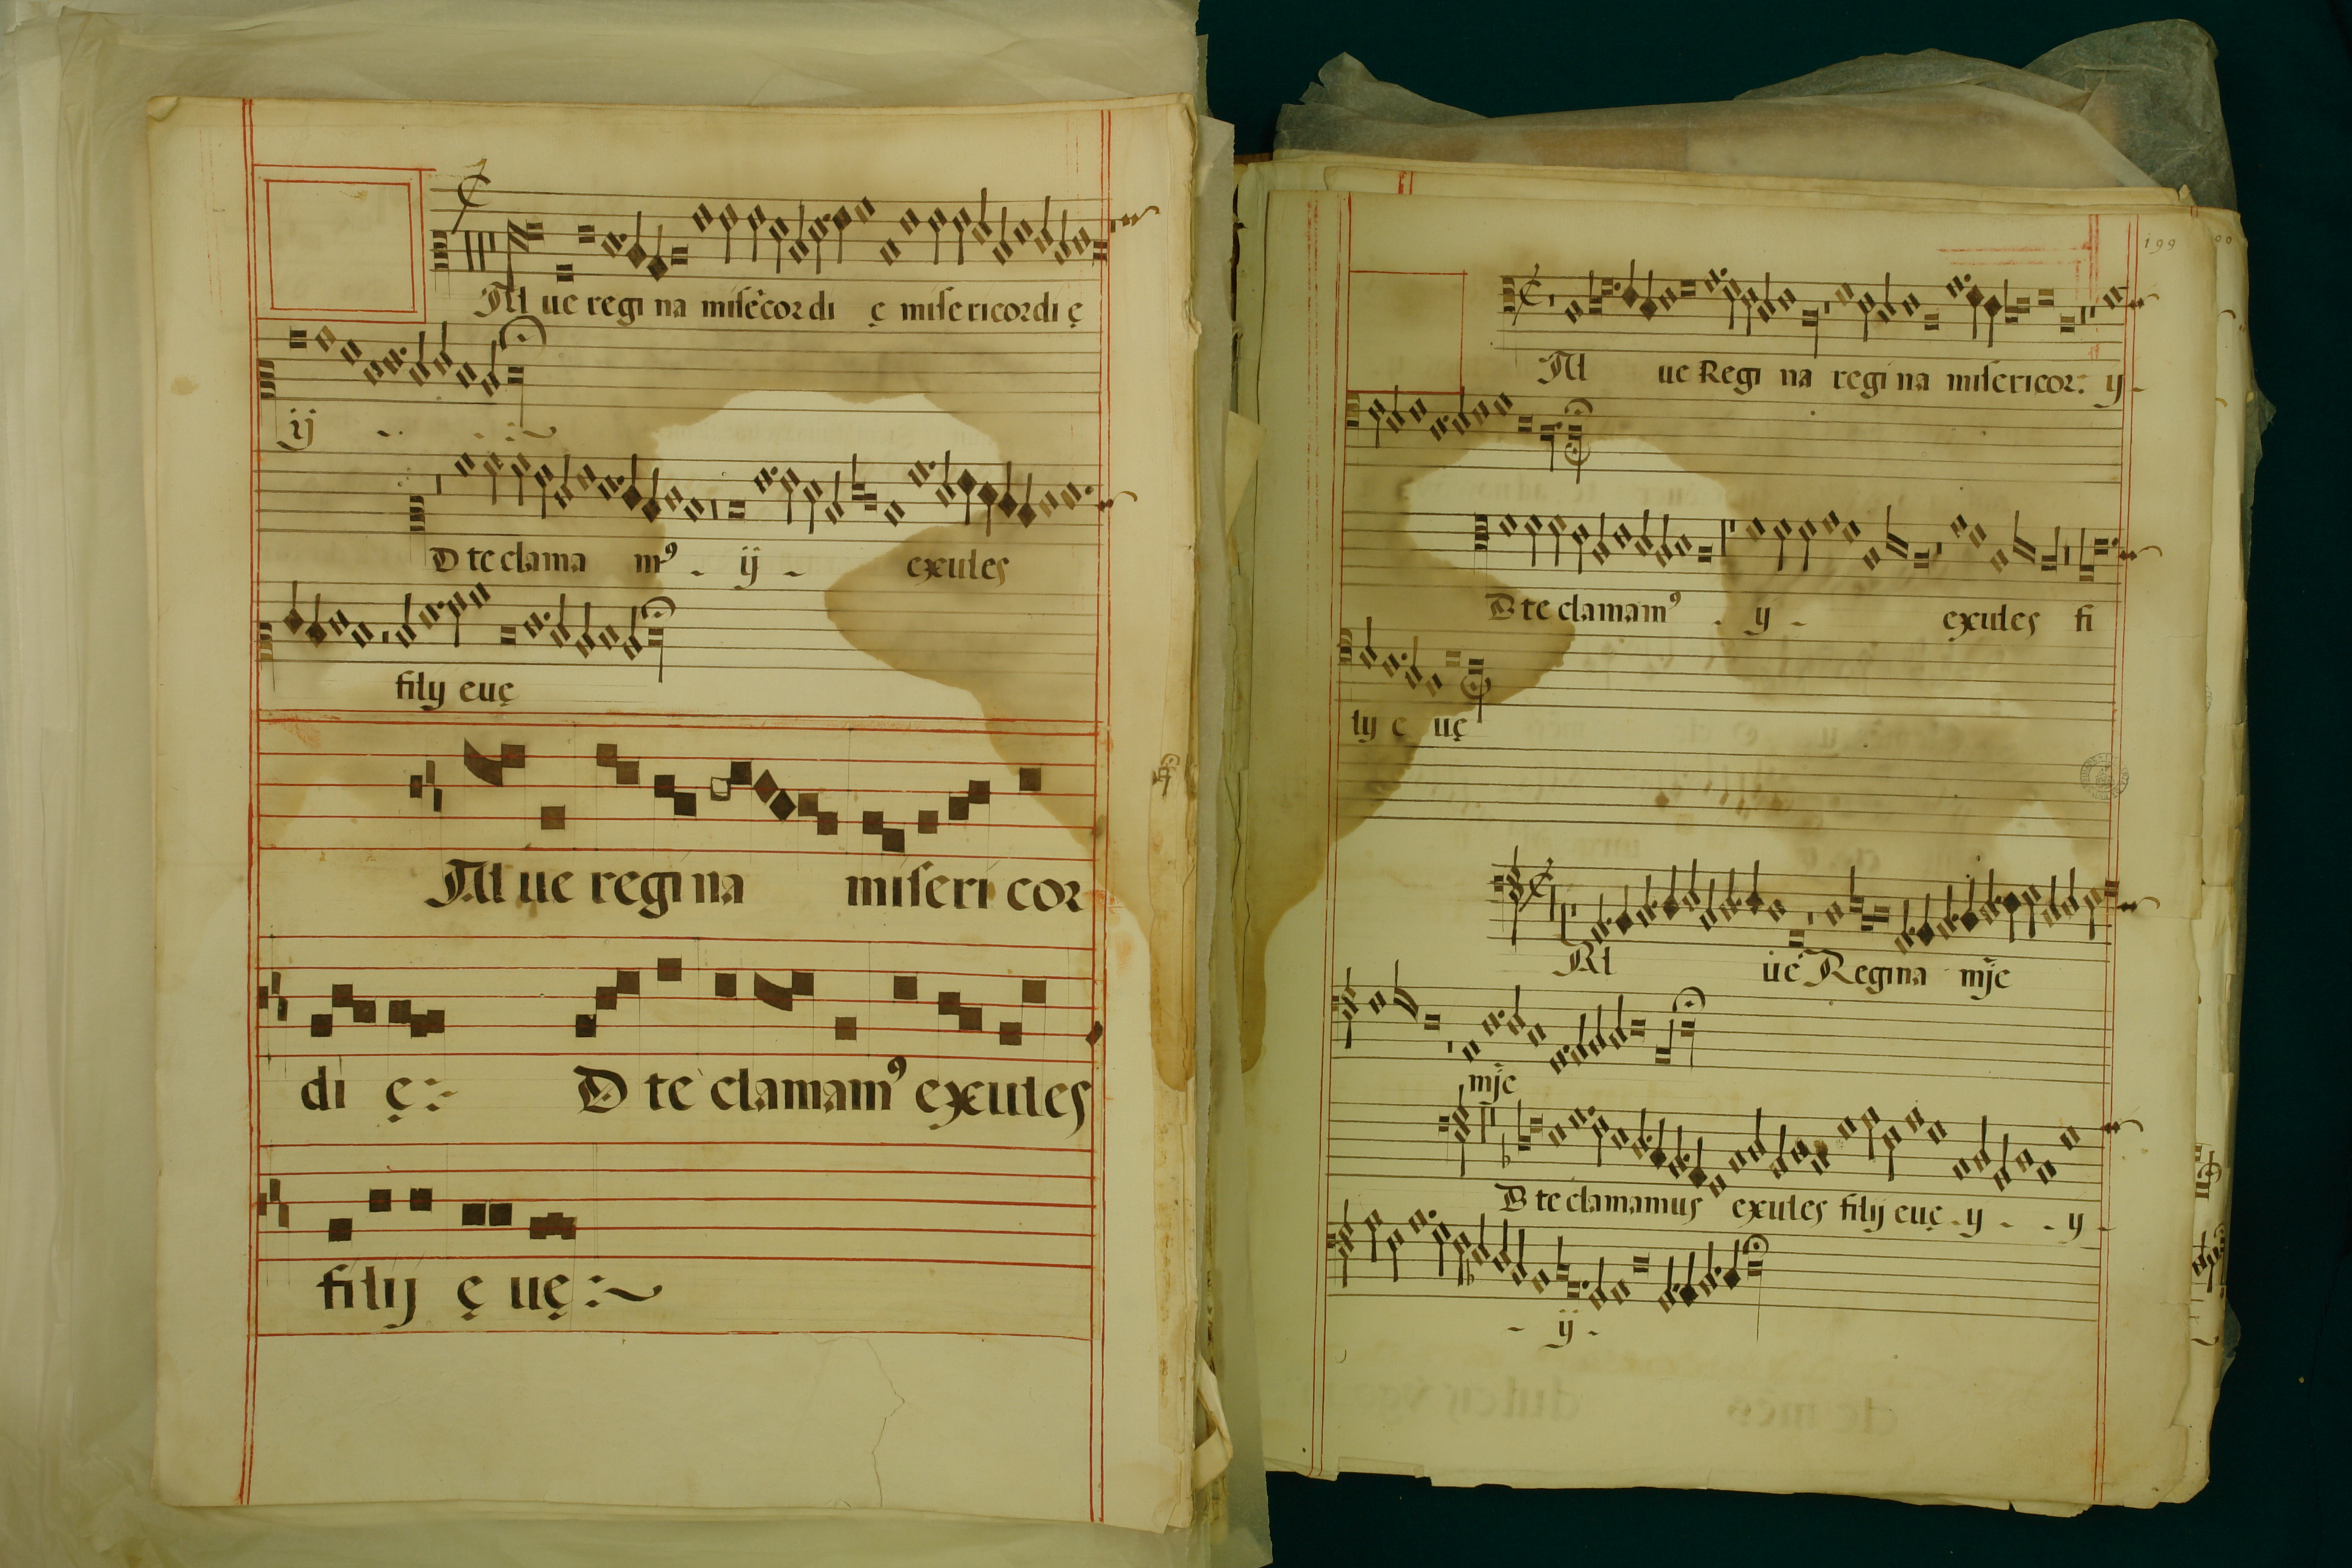 Al ue regi na misēcordi ę misericordi ę
ij
D te clama mꝰ ij exules
filij euę
Al ue regi na miseri cor
di ę D te clamamꝰ exules
filij ę uę
199
Al ue Regi na regi na misericor: ij
D te clamamꝰ ij exules fi
lij e uę
Al ue Regina mīe
mīe
D te clamamus exules filij euę ij ij
ij